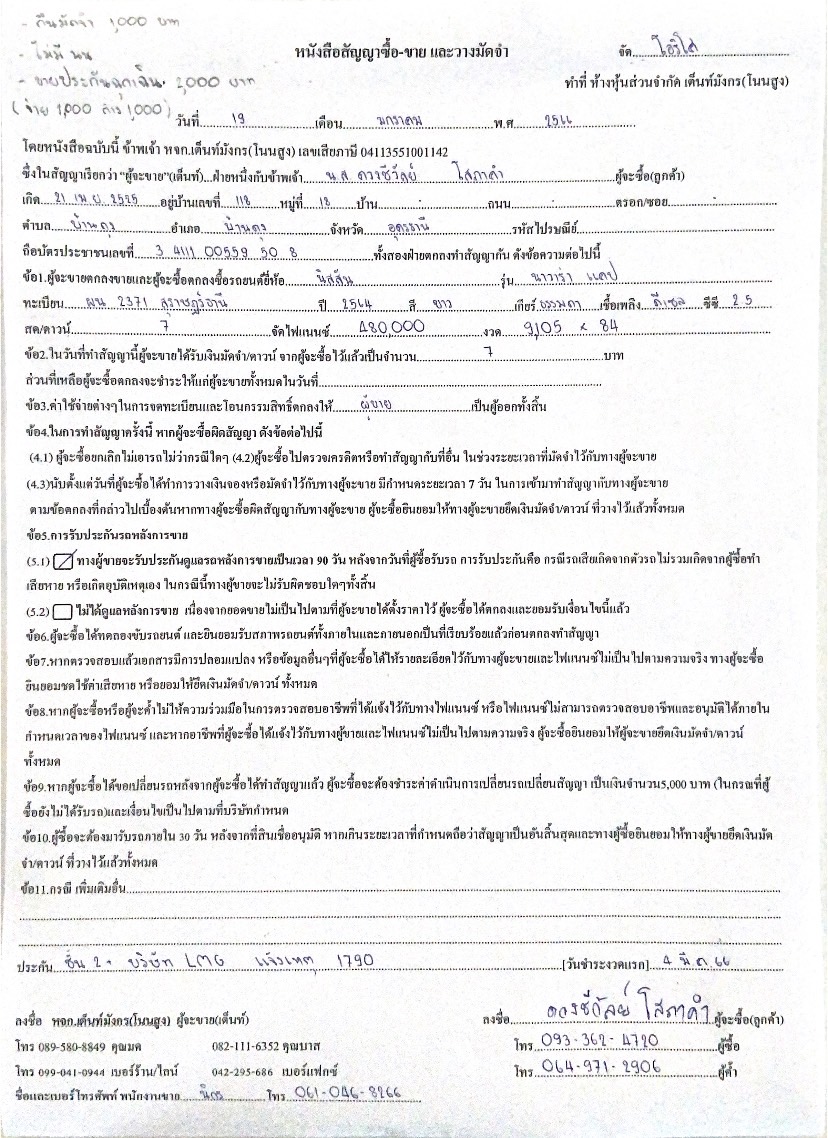 - คืนมัดจำ 1,000 บาท
- ไม่มี นน
- ขายประกันฉุกเฉิน 2,000 บาท
(จ่าย 1,000 ค้าง 1,000)
หนังสือสัญญาซื้อ-ขาย และวางมัดจำ
จัด ไอริโส่
ทำที่ ห้างหุ้นส่วนจำกัด เต็นท์มังกร(โนนสูง)
วันที่ 19 เดือน มกราคม พ.ศ 2566
โดยหนังสือฉบับนี้ ข้าพเจ้า หจก.เต็นท์มังกร(โนนสูง) เลขเสียภาษี 04113551001142
ซึ่งในสัญญาเรียกว่า "ผู้จะขาย"(เต็นท์)...ฝ่ายหนึ่งกับข้าพเจ้า น.ส ดวงชีวัลย์ โสภาคำ ผู้จะซื้อ(ลูกค้า)
เกิด 21 เม.ย 2525 อยู่บ้านเลขที่ 118 หมู่ที่ 18 บ้าน ถนน ตรอก/ซอย
ตำบล บ้านดุง อำเภอ บ้านดุง จังหวัด อุดรธานี รหัสไปรษณีย์
ถือบัตรประชาชนเลขที่ 3 4111 00559 50 8 ทั้งสองฝ่ายตกลงทำสัญญากัน ดังข้อความต่อไปนี้
ข้อ1.ผู้จะขายตกลงขายและผู้จะซื้อตกลงซื้อรถยนต์ยี่ห้อ นิสสัน รุ่น นาวาร่า แคป
ทะเบียน ผน 2371 สุราษฎร์ธานี ปี 2564 สี ขาว เกียร์ ธรรมดา เชื้อเพลิง ดีเซล ซีซี 2.5
สด/ดาวน์ 7 จัดไฟแนนซ์ 480,000 งวด 9,105 x 84
ข้อ2.ในวันที่ทำสัญญานี้ผู้จะขายได้รับเงินมัดจำ/ดาวน์ จากผู้จะซื้อไว้แล้วเป็นจำนวน 7 บาท
ส่วนที่เหลือผู้จะซื้อตกลงจะชำระให้แก่ผู้จะขายทั้งหมดในวันที่
ข้อ3.ค่าใช้จ่ายต่างๆในการจดทะเบียนและโอนกรรมสิทธิ์ตกลงให้ ผู้ขาย เป็นผู้ออกทั้งสิ้น
ข้อ4.ในการทำสัญญาครั้งนี้ หากผู้จะซื้อผิดสัญญา ดังข้อต่อไปนี้
(4.1) ผู้จะซื้อยกเลิกไม่เอารถไม่ว่ากรณีใดๆ (4.2)ผู้จะซื้อไปตรวจเครดิตหรือทำสัญญากับที่อื่น ในช่วงระยะเวลาที่มัดจำไว้กับทางผู้จะขาย
(4.3)นับตั้งแต่วันที่ผู้จะซื้อได้ทำการวางเงินจองหรือมัดจำไว้กับทางผู้จะขาย มีกำหนดระยะเวลา 7 วัน ในการเข้ามาทำสัญญากับทางผู้จะขาย
ตามข้อตกลงที่กล่าวไปเบื้องต้นหากทางผู้จะซื้อผิดสัญญากับทางผู้จะขาย ผู้จะซื้อยินยอมให้ทางผู้จะขายยึดเงินมัดจำ/ดาวน์ ที่วางไว้แล้วทั้งหมด
ข้อ5.การรับประกันรถหลังการขาย
(5.1) ทางผู้ขายจะรับประกันดูแลรถหลังการขายเป็นเวลา 90 วัน หลังจากวันที่ผู้ซื้อรับรถ การรับประกันคือ กรณีรถเสียเกิดจากตัวรถไม่รวมเกิดจากผู้ซื้อทำ
เสียหาย หรือเกิดอุบัติเหตุเอง ในกรณีนี้ทางผู้ขายจะไม่รับผิดชอบใดๆทั้งสิ้น
(5.2) ไม่ได้ดูแลหลังการขาย เนื่องจากยอดขายไม่เป็นไปตามที่ผู้จะขายได้ตั้งราคาไว้ ผู้จะซื้อได้ตกลงและยอมรับเงื่อนไขนี้แล้ว
ข้อ6.ผู้จะซื้อได้ทดลองขับรถยนต์ และยินยอมรับสภาพรถยนต์ทั้งภายในและภายนอกเป็นที่เรียบร้อยแล้วก่อนตกลงทำสัญญา
ข้อ7.หากตรวจสอบแล้วเอกสารมีการปลอมแปลง หรือข้อมูลอื่นๆที่ผู้จะซื้อได้ให้รายละเอียดไว้กับทางผู้จะขายและไฟแนนซ์ไม่เป็นไปตามความจริง ทางผู้จะซื้อ
ยินยอมชดใช้ค่าเสียหาย หรือยอมให้ยึดเงินมัดจำ/ดาวน์ ทั้งหมด
ข้อ8.หากผู้จะซื้อหรือผู้จะค้ำไม่ให้ความร่วมมือในการตรวจสอบอาชีพที่ได้แจ้งไว้กับทางไฟแนนซ์ หรือไฟแนนซ์ไม่สามารถตรวจสอบอาชีพและอนุมัติได้ภายใน
กำหนดเวลาของไฟแนนซ์ และหากอาชีพที่ผู้จะซื้อได้แจ้งไว้กับทางผู้ขายและไฟแนนซ์ไม่เป็นไปตามความจริง ผู้จะซื้อยินยอมให้ผู้จะขายยึดเงินมัดจำ/ดาวน์
ทั้งหมด
ข้อ9.หากผู้จะซื้อได้ขอเปลี่ยนรถหลังจากผู้จะซื้อได้ทำสัญญาแล้ว ผู้จะซื้อจะต้องชำระค่าดำเนินการเปลี่ยนรถเปลี่ยนสัญญา เป็นเงินจำนวน5,000 บาท (ในกรณีที่ผู้
ซื้อยังไม่ได้รับรถ)และเงื่อนไขเป็นไปตามที่บริษัทกำหนด
ข้อ10.ผู้ซื้อจะต้องมารับรถภายใน 30 วัน หลังจากที่สินเชื่ออนุมัติ หากเกินระยะเวลาที่กำหนดถือว่าสัญญาเป็นอันสิ้นสุดและทางผู้ซื้อยินยอมให้ทางผู้ขายยึดเงินมัด
จำ/ดาวน์ ที่วางไว้แล้วทั้งหมด
ข้อ11.กรณี เพิ่มเติมอื่น
ประกัน ชั้น 2+ บริษัท LMG แจ้งเหตุ 1790 [วันชำระงวดแรก] 4 มี.ค.66
ลงชื่อ หจก.เต็นท์มังกร(โนนสูง) ผู้จะขาย(เต็นท์) ลงชื่อ ดวงชีวัลย์ โสภาคำ ผู้จะซื้อ(ลูกค้า)
โทร 089-580-8849 คุณมด 082-111-6352 คุณบาส โทร 093-362-4720 ผู้ซื้อ
โทร 099-041-0944 เบอร์ร้าน/ไลน์ 042-295-686 เบอร์แฟกซ์ โทร 064-971-2906 ผู้ค้ำ
ชื่อและเบอร์โทรศัพท์ พนักงานขาย นิกร โทร 061-046-8266